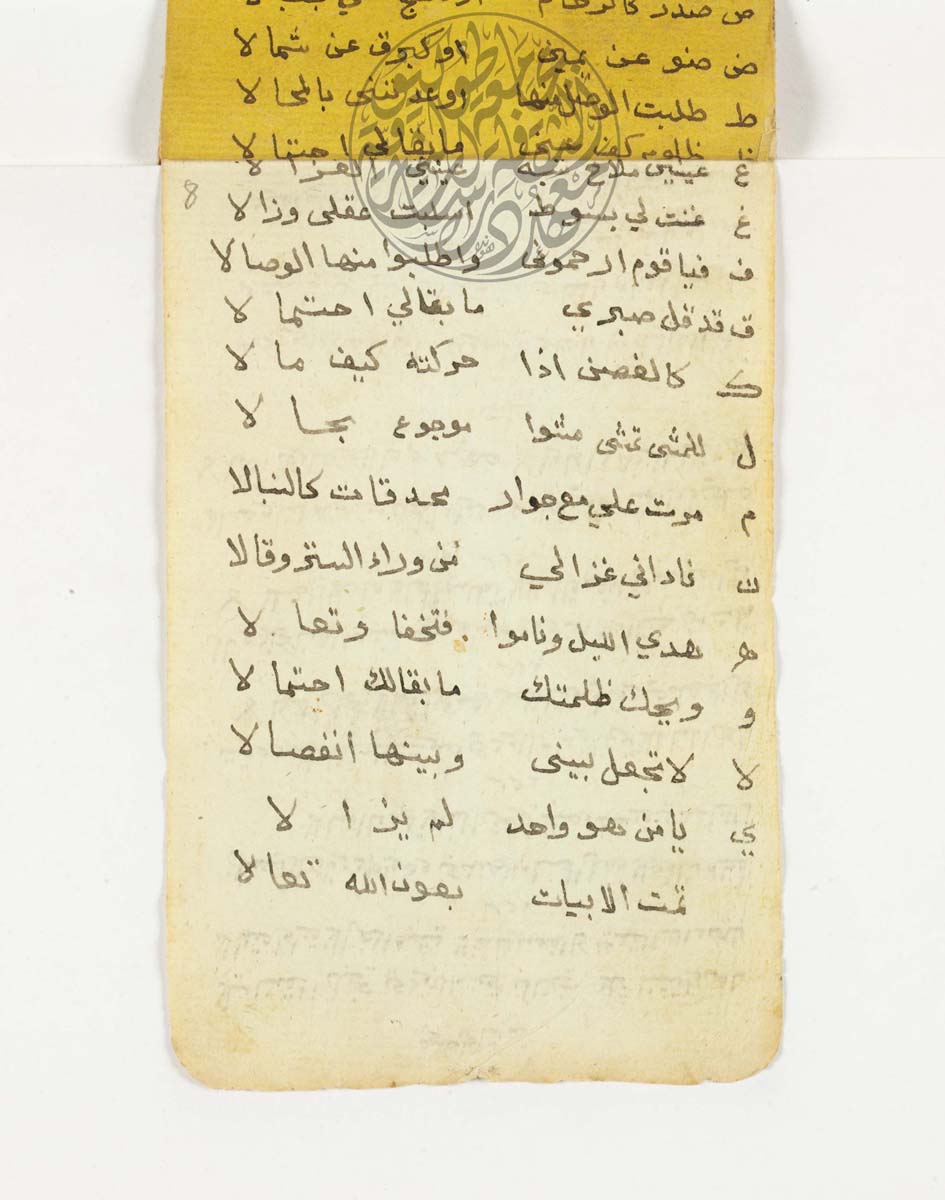 ص صدر كالرخام
ض ضو عن يمينى او كبوق عن شما لا
ط طلبت الوصل منها اوعدتنى بالمحا لا
ظ ما بقالي احتما لا
ع عينين ملاح عيني الغزا لا
8
غ غنت لي بسوط اسلبت عقلى وزا لا
ف فيا قوم ارحمونى واطلبوا منها الوصالا
ق قد قل صبري ما بقالي احتما لا
ك كالغصن اذا حركته كيف ما لا
ل للمشى تمشى موجوع بحا لا
م مرت علي مع جوار محدقات كالنبالا
ن ناداني غزالي من وراء الستر وقالا
ه هدي الليل وناموا فتخفا وتعا لا
و ويحك ظلمتك ما بقالك احتما لا
لا لا تجعل بينى وبينها انفصا لا
ي يا من هو واحد لم يزا لا
تمت الابيات بعون الله تعا لا